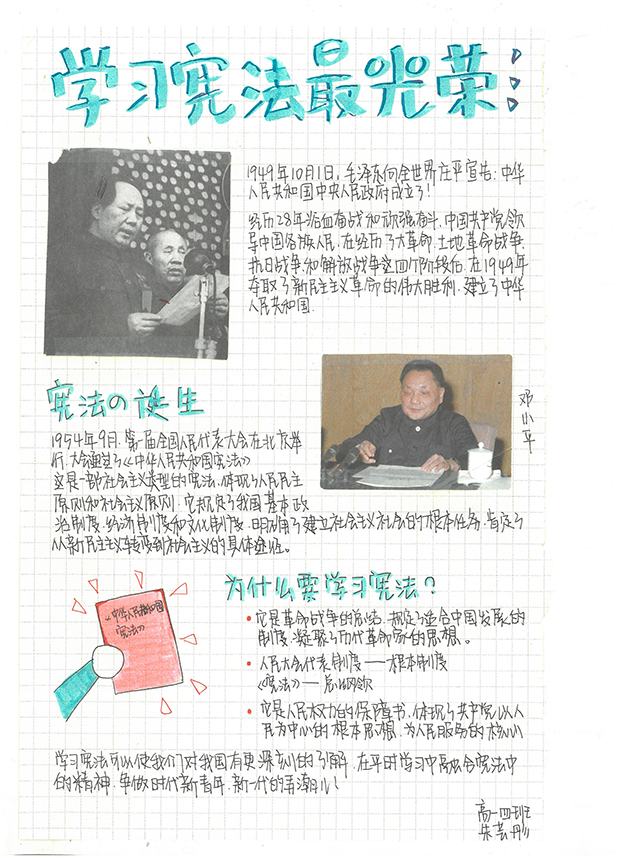 学习宪法最光荣
1949年10月1日,毛泽东向全世界庄严宣告:中华
人民共和国中央人民政府成立了!
经历28年浴血奋战和顽强奋斗,中国共产党领
导中国各族人民,在经历了大革命、土地革命战争、
抗日战争、和解放战争这四个阶段后,在1949年
夺取了新民主主义革命的伟大胜利,建立了中华
人民共和国.
邓小平
宪法の诞生
1954年9月,第一届全国人民代表大会在北京举
行,大会通过了《中华人民共和国宪法》
这是一部社会主义类型的宪法,体现了人民民主
原则和社会主义原则,它规定了我国基本政
治制度、经济制度和文化制度,明确了建立社会主义社会的根本任务,肯定了
从新民主主义转变到社会主义的具体途径。
《中华人民共和国
宪法》
为什么要学习宪法?
• 它是革命战争的总结,规定了适合中国发展的
制度,凝聚了历代革命家的思想。
• 人民大会代表制度——根本制度
《宪法》——总纲领
• 它是人民权力的保障书,体现了共产党以人
民为中心的根本思想,为人民服务的核心
学习宪法可以使我们对我国有更深刻的了解,在平时学习中融会宪法中
的精神,争做时代新青年,新一代的弄潮儿!
高一四班
朱芸彤